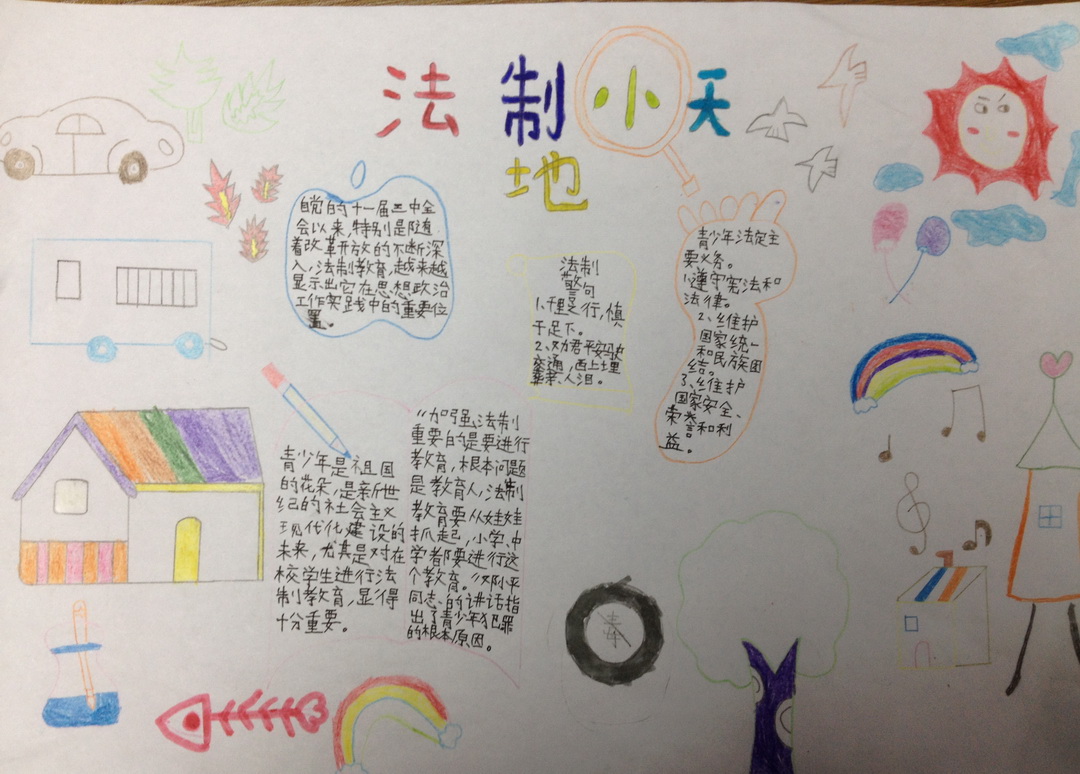 法制小天
地
自党的十一届三中全
会以来,特别是随
着改革开放的不断深
入,法制教育,越来越
显示出它在思想政治
工作实践中的重要位
置。
法制
警句
1、千里之行,慎
于足下。
2、劝君平安驶
交通,
人泪。
青少年法定主
要义务。
1、遵守宪法和
法律。
2、维护
国家统一
和民族团
结。
3、维护
国家安全、
荣誉和利
益。
青少年是祖国
的花朵,是新世
纪的社会主义
现代化建设的
未来,尤其是对在
校学生进行法
制教育,显得
十分重要。
"加强法制
重要的是要进行
教育,根本问题
是教育人,法制
教育要从娃娃
抓起,小学、中
学者都要进行这
个教育。"邓小平
同志的讲话指
出了青少年犯罪
的根本原因。
毒